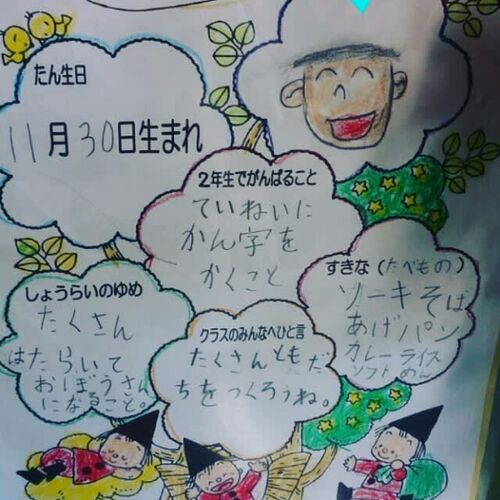 たん生日
11月30日生まれ
2年生でがんばること
ていねいに
かん字を
かくこと
すきな(たべもの)
ソーキそば
あげパン
カレーライス
ソフトめん
しょうらいのゆめ
たくさん
はたらいて
おぼうさん
になること。
クラスのみんなへひと言
たくさんともだ
ちをつくろうね。